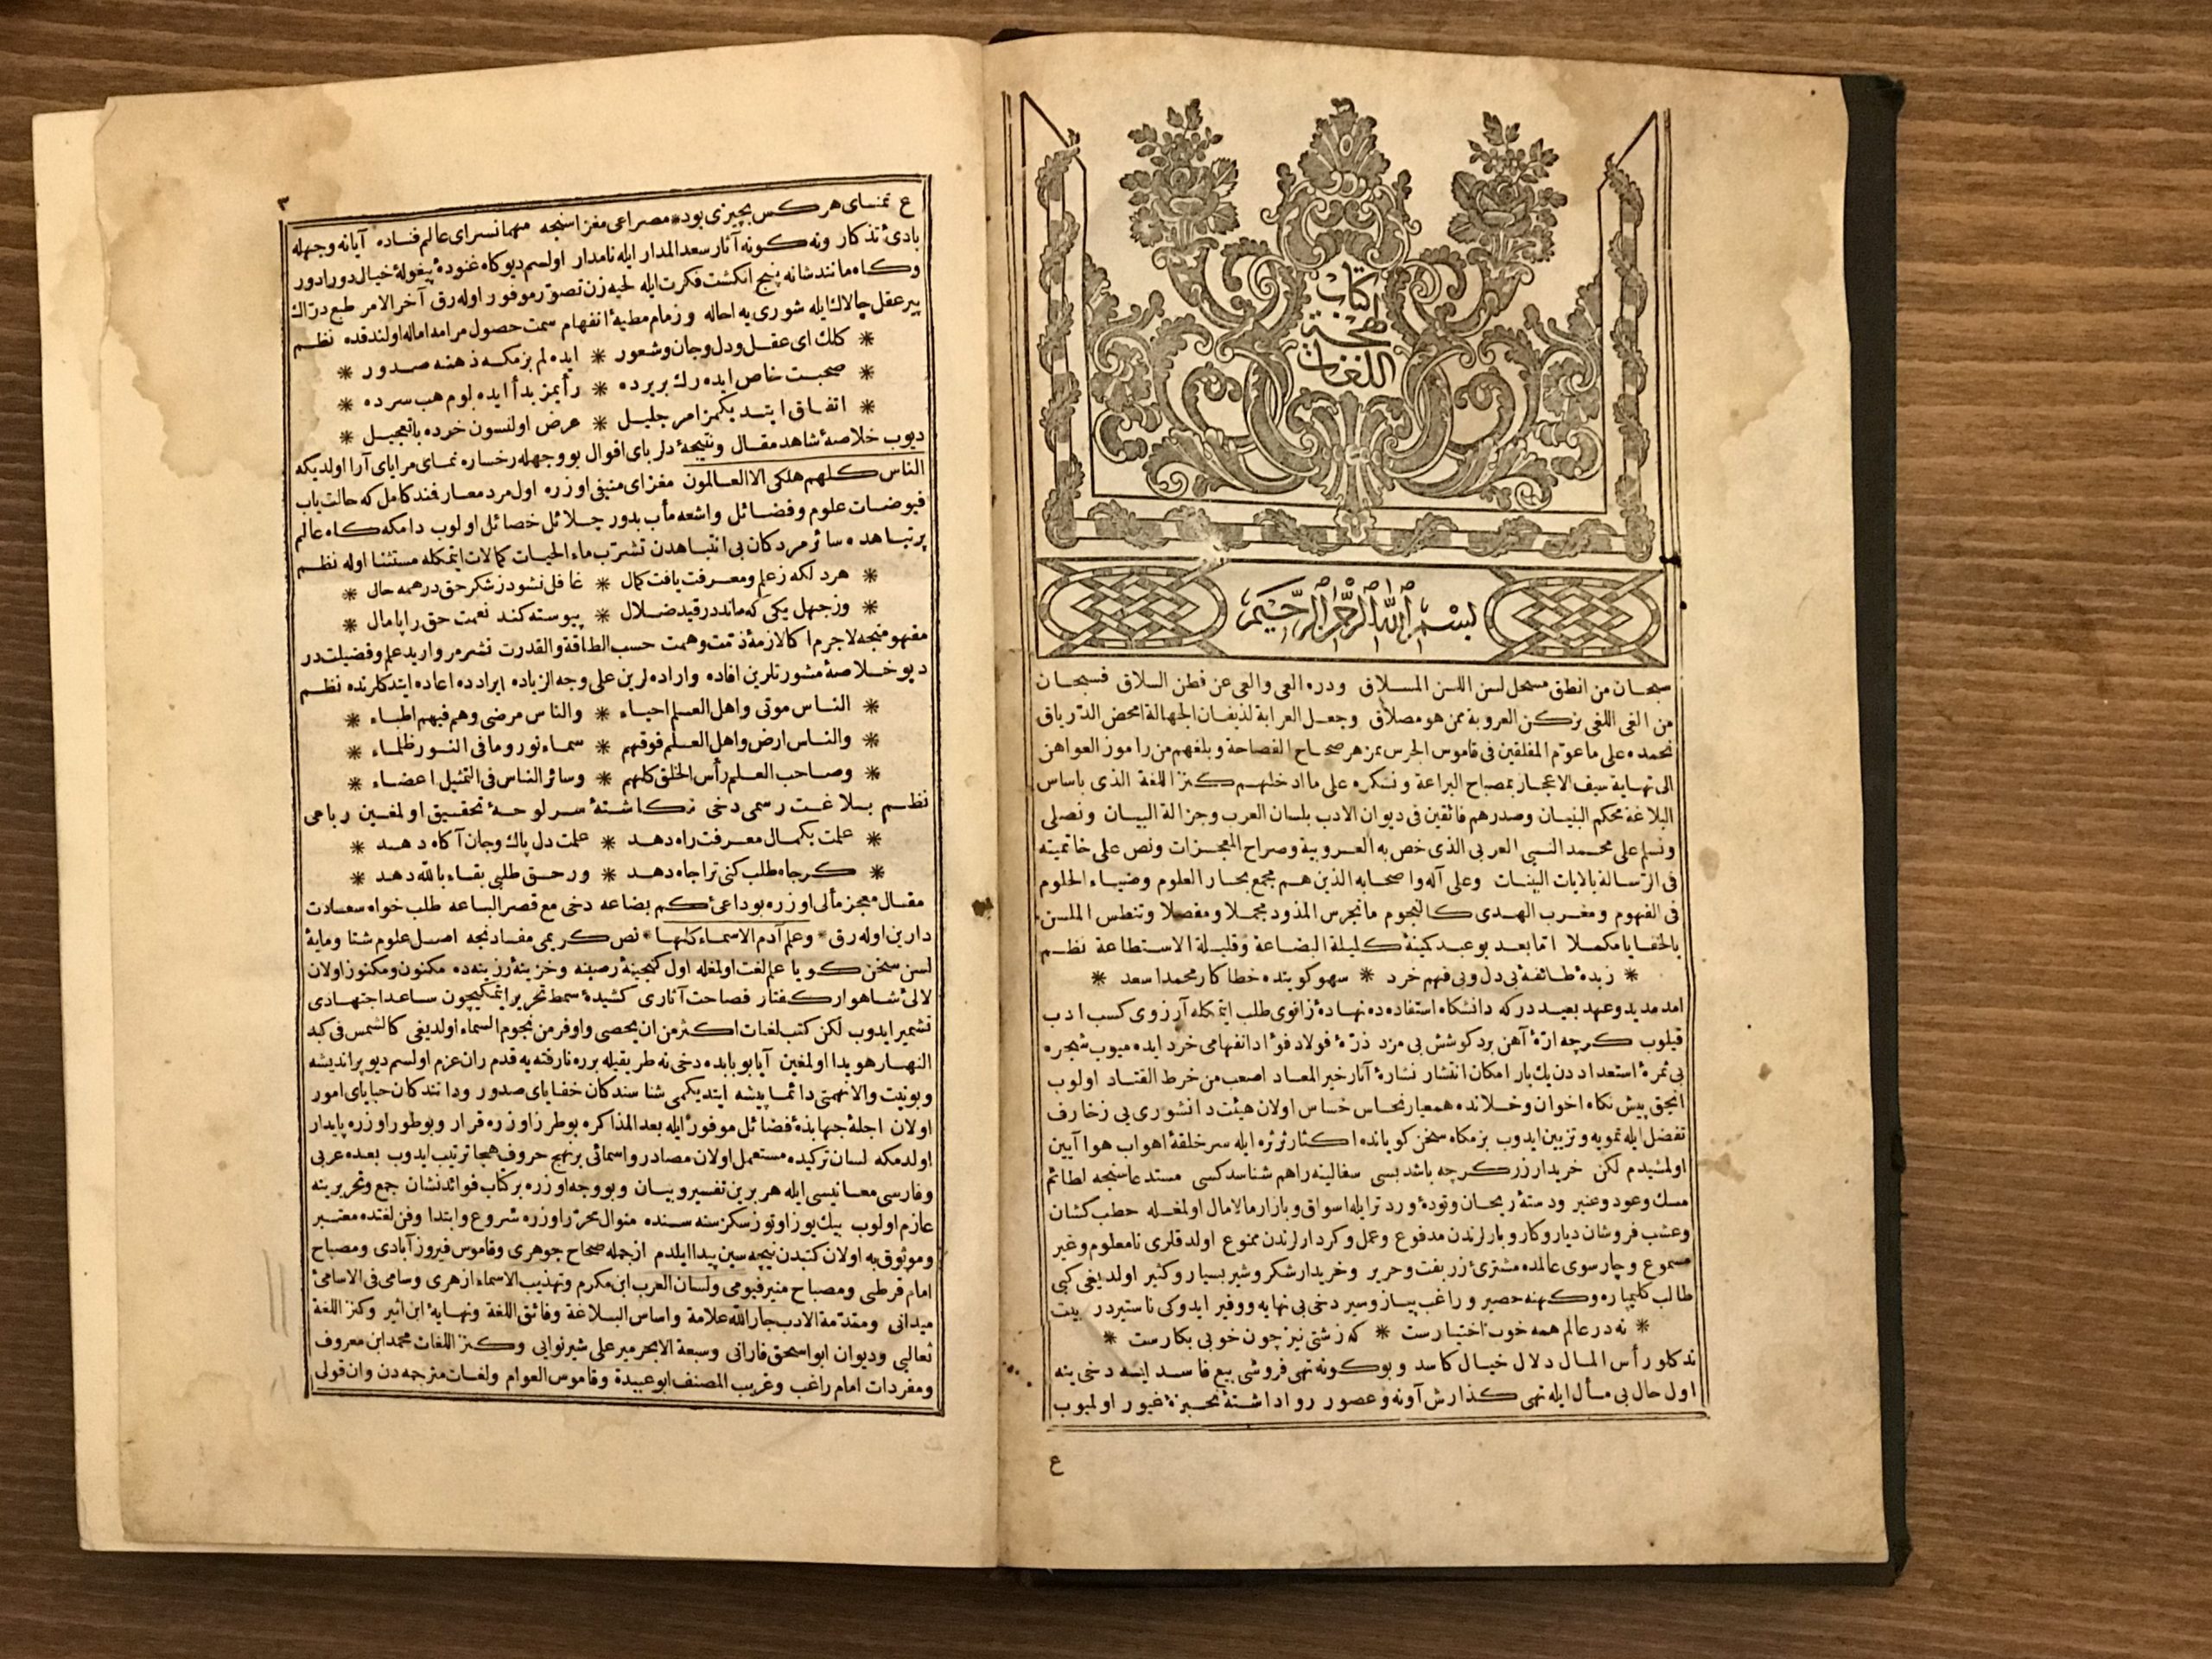 كتاب
لهجة
اللغات
بسم الله الرحمن الرحيم
سبحان من انطق مسحل لسن اللسن المسلاق ودره العى والعى عن فطن السلاق فسبحان
من الغى اللغى بزكن العروبة ممن هو مصلاق وجعل العرابة لذيفان الجهالة امحض الدرياق
نحمده على ما عوم المغلقين فى قاموس الجرس بمزهر صحاح الفصاحة وبلغهم من راموز العواهن
الى نهاية سيف الاعجاز بمصباح البراعة ونشكره على ما ادخلهم كنز اللغة الذى باساس
البلاغة محكم البنيان وصدرهم فائقين فى ديوان الادب بلسان العرب وجزالة البيان ونصلى
ونسلم على محمد النبى العربى الذى خص به العروبية وصراح المعجزات ونص على خاتميته
فى الرسالة بالايات البينات وعلى آله واصحابه الذين هم مجمع بحار العلوم وضياء الحلوم
فى الفهوم ومغرب الهدى كالنجوم ما تجرس المذود مجملا ومفصلا وتنطس الملسن
بالخفايا مكملا اما بعد بو عبد كمينۀ كليلة البضاعة وقليلة الاستطاعة نظم
* زبدۀ طائفۀ بى دل وبى فهم خرد * سهو كوينده خطا كار محمد اسعد *
امد مديد وعهد بعيددركه دانشكاه استفاده ده نهادۀ زانوى طلب ايتمكله آرزوى كسب ادب
قيلوب كرچه ارۀ آهن برد كوشش بى مزد ذرۀ فولاد فؤاد انفهامى خرد ايده ميوب شجره
بى ثمرۀ استعداددن يك بار امكان انتشار نشارۀ آثار خير المعاد اصعب من خرط القتاد اولوب
انجق پيش نكاه اخوان وخلانده همعيار نحاس خساس اولان هيئت دانشورى بى زخارف
تفضل ايله تمويه وتزيين ايدوب بزمكاه سخن كويانده اكثار ثرثره ايله سر خلقۀ اهواب هوا آيين
اولمشيدم لكن خريدار زر كرچه باشد بسى سفالينه راهم شناسد كسى مستدعاسنجه لطائم
مسك وعود وعنبر ودستۀ ريحان وتودۀ ورد ترايله اسواق وبازار مالامال اولمغله حطب كشان
وعشب فروشان ديار وكار وبارلرندن مدفوع وعمل وكردارلرندن ممنوع اولدقلرى نامعلوم وغير
مسموع وچارسوى عالمده مشترئ زربفت وحرير وخريدار شكر وشير بسيار وكثير اولديغى كبى
طالب كليمپاره وكهنه حصير و راغب پياز وسير دخى بى نهايه و وفير ايدوكى ناستيردر بيت
* نه در عالم همه خوب اختيارست * كه زشتى نيز چون خوبى بكارست *
ندكلو رأس المال دلال خيال كاسد وبوكونه تهى فروشى بيع فاسد ايسه دخى ينه
اول حال بى مسأل ايله تهى كذارش آونه وعصور رواداشتۀ نحيزۀ غيور اولميوب
ع
٣
ع تمناى هركس بچيزى بود * مصراعى مغزاسنجه مهمانسراى عالم فناده آيا نه وجهله
بادئ تذكار ونه كونه آثار سعد المدار ايله نامدار اولسم ديو كاه غنودۀ پيغولۀ خيال دورادور
وكاه مانند شانه پنج انكشت فكرت ايله لحيه زن تصور موفور اوله رق آخر الامر طبع دراك
پير عقل چالاك ايله شورى يه احاله و زمام مطيۀ انفهام سمت حصول مرامه اماله اولندقده نظم
* كلك اى عقل ودل وجان وشعور * ايده لم بزمكه ذهنه صدور *
* صحبت خاص ايده رك بر يرده * رأيمز بدأ ايده لوم هب سرده *
* اتفاق ايتديكمز امر جليل * عرض اولنسون خرده بالتعجيل *
ديوب خلاصۀ شاهد مقال ونتيجۀ دلرباى اقوال بو وجهله رخساره نماى مراياى آرا اولديكه
الناس كلهم هلكى الا العالمون مغزاى منيفى اوزره اول مرد معارفمند كامل كه حالت ياب
فيوضات علوم وفضائل واشعه مأب بدور جلائل خصائل اولوب دامكه كاه عالم
پر تباهده سائر مردكان بى انتباهدن تشرب ماء الحيات كمالات ايتمكله مستثنا اوله نظم
* هر دلكه ز علم ومعرفت يافت كمال * غافل نشود ز شكر حق در همه حال *
* وز جهل يكى كه ماند در قيد ضلال * پيوسته كند نعمت حق را پامال *
مفهومنجه لاجرم اكا لازمۀ ذمت وهمت حسب الطاقة والقدرت نشر مرواريد علم وفضيلتدر
ديو خلاصۀ مشورتلرين افاده واراده لرين على وجه الزياده ايراد ده اعاده ايتدكلرنده نظم
* الناس موتى واهل العلم احياء * والناس مرضى وهم فيهم اطباء *
* والناس ارض واهل العلم فوقهم * سماء نور وما فى النور ظلماء *
* وصاحب العلم رأس الخلق كلهم * وسائر الناس فى التمثيل اعضاء *
نظم بلاغت رسمى دخى نكاشتۀ سر لوحۀ تحقيق اولمغين رباعى
* علمت بكمال معرفت راه دهد * علمت دل پاك وجان آكاه دهد *
* كر جاه طلب كنى ترا جاه دهد * ور حق طلبى بقاء بالله دهد *
مقال معجز مألى اوزره بو داعئ كم بضاعه دخى مع قصر الباعه طلب خواه سعادت
دارين اوله رق * وعلم آدم الاسماء كلها * نص كريمى مفادنجه اصل علوم شتا ومايۀ
لسن سخن كويا علم لغت اولمغله اول كنجينۀ رصينه وخزينۀ رزينه ده مكنون ومكنوز اولان
لالئ شاهوار كفتار فصاحت آثارى كشيدۀ سمط تحرير ايتمكيچون ساعد اجتهادى
تشمير ايدوب لكن كتب لغات اكثر من ان يحصى واوفر من نجوم السماء اولديغى كالشمس فى كبد
النهار هويدا اولمغين آيا بو بابده دخى نه طريقيله برره نارفته يه قدم ران عزم اولسم ديو بر انديشه
وبو نيت والا نهمتى دائما پيشه ايتديكمى شناسندكان خفاياى صدور ودانندكان خباياى امور
اولان اجلۀ جهابذۀ فضائل موفور ايله بعد المذاكره بو طرز اوزره قرار وبو طور اوزره پايدار
اولدمكه لسان تركيده مستعمل اولان مصادر واسمائى بر نهج حروف هجا ترتيب ايدوب بعده عربى
وفارسى معانيسى ايله هر برين تفسير وبيان وبو وجه اوزره بر كتاب فوائد نشان جمع وتحريرينه
عازم اولوب بيك يوز اوتوز سكز سنه سنده منوال محرر اوزره شروع وابتدا وفن لغتده معتبر
وموثوق به اولان كتبدن نيچه سين پيدا ايلدم ازجمله صحاح جوهرى وقاموس فيروز آبادى ومصباح
امام قرطبى ومصباح منير فيومى ولسان العرب ابن مكرم وتهذيب الاسماء ازهرى وسامى فى الاسامئ
ميدانى ومقدمة الادب جار الله علامة واساس البلاغة وفائق اللغة ونهايۀ ابن اثير وكنز اللغة
ثعالبى وديوان ابو اسحق فارانى وسبعة الابحر مير على شير نوايى وكنز اللغات محمد ابن معروف
ومفردات امام راغب وغريب المصنف ابو عبيدة وقاموس العوام ولغات مترجمه دن وان قولى